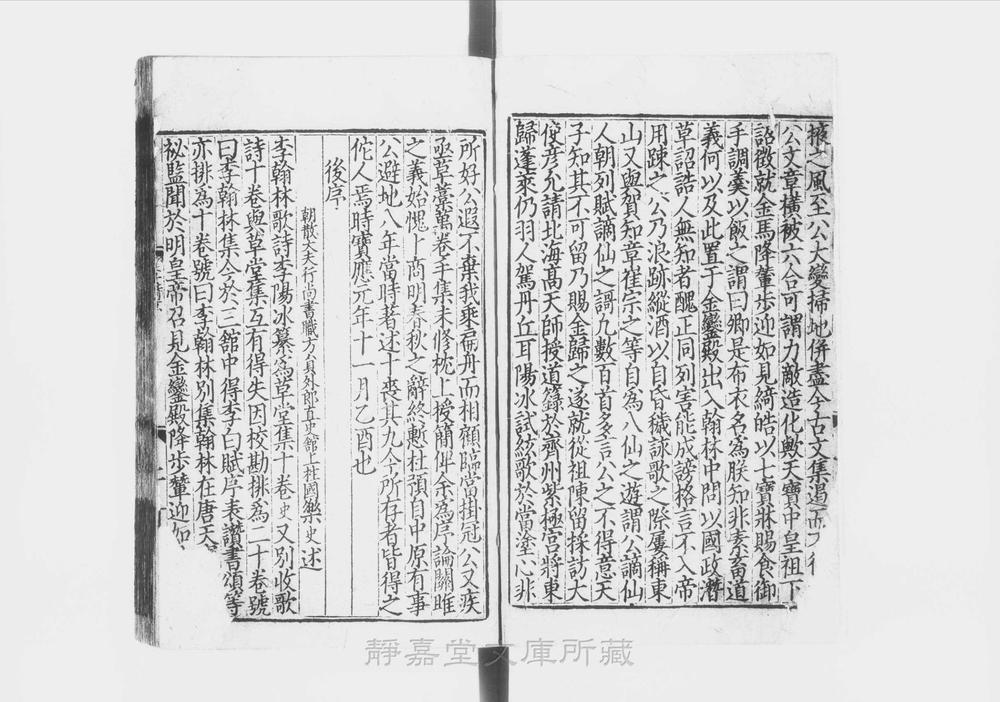 掖之風至公大變掃地併盡今古文集遏而不行
公文章橫被六合可謂力敵造化歟天寶中皇祖下
詔徵就金馬降輦步迎如見綺皓以七寶牀賜食御
手調羹以飯之謂曰卿是布衣名爲朕知非素畜道
義何以及此置于金鑾殿出入翰林中問以國政潛
草詔誥人無知者醜正同列害能成謗格言不入帝
用踈之公乃浪跡縱酒以自昏穢詠歌之際屢稱東
山又與賀知章崔宗之等自爲八仙之遊謂公謫仙
人朝列賦謫仙之謌凡數百首多言公之不得意天
子知其不可留乃賜金歸之遂就從祖陳留採訪大
使彦允請北海髙天師授道籙於齊州紫極宮將東
歸蓬萊仍羽人駕丹丘耳陽冰試絃歌於當塗心非
所好公遐不棄我乘扁舟而相顧臨當掛冠公又疾
亟草藁萬卷手集未修枕上授簡俾余爲序論關雎
之義始愧卜商明春秋之辭終慙杜預自中原有事
公避地八年當時著述十喪其九今所存者皆得之
佗人焉時寶應元年十一月乙酉也
後序
朝散大夫行尚書職方員外郎直史館上柱國樂史述
李翰林歌詩李陽冰纂爲草堂集十卷史又別收歌
詩十卷與草堂集互有得失因校勘排爲二十卷號
曰李翰林集今於三舘中得李白賦序表讚書頌等
亦排爲十卷號曰李翰林別集翰林在唐天
祕監聞於明皇帝召見金鑾殿降步輦迎如
靜嘉堂文庫所藏